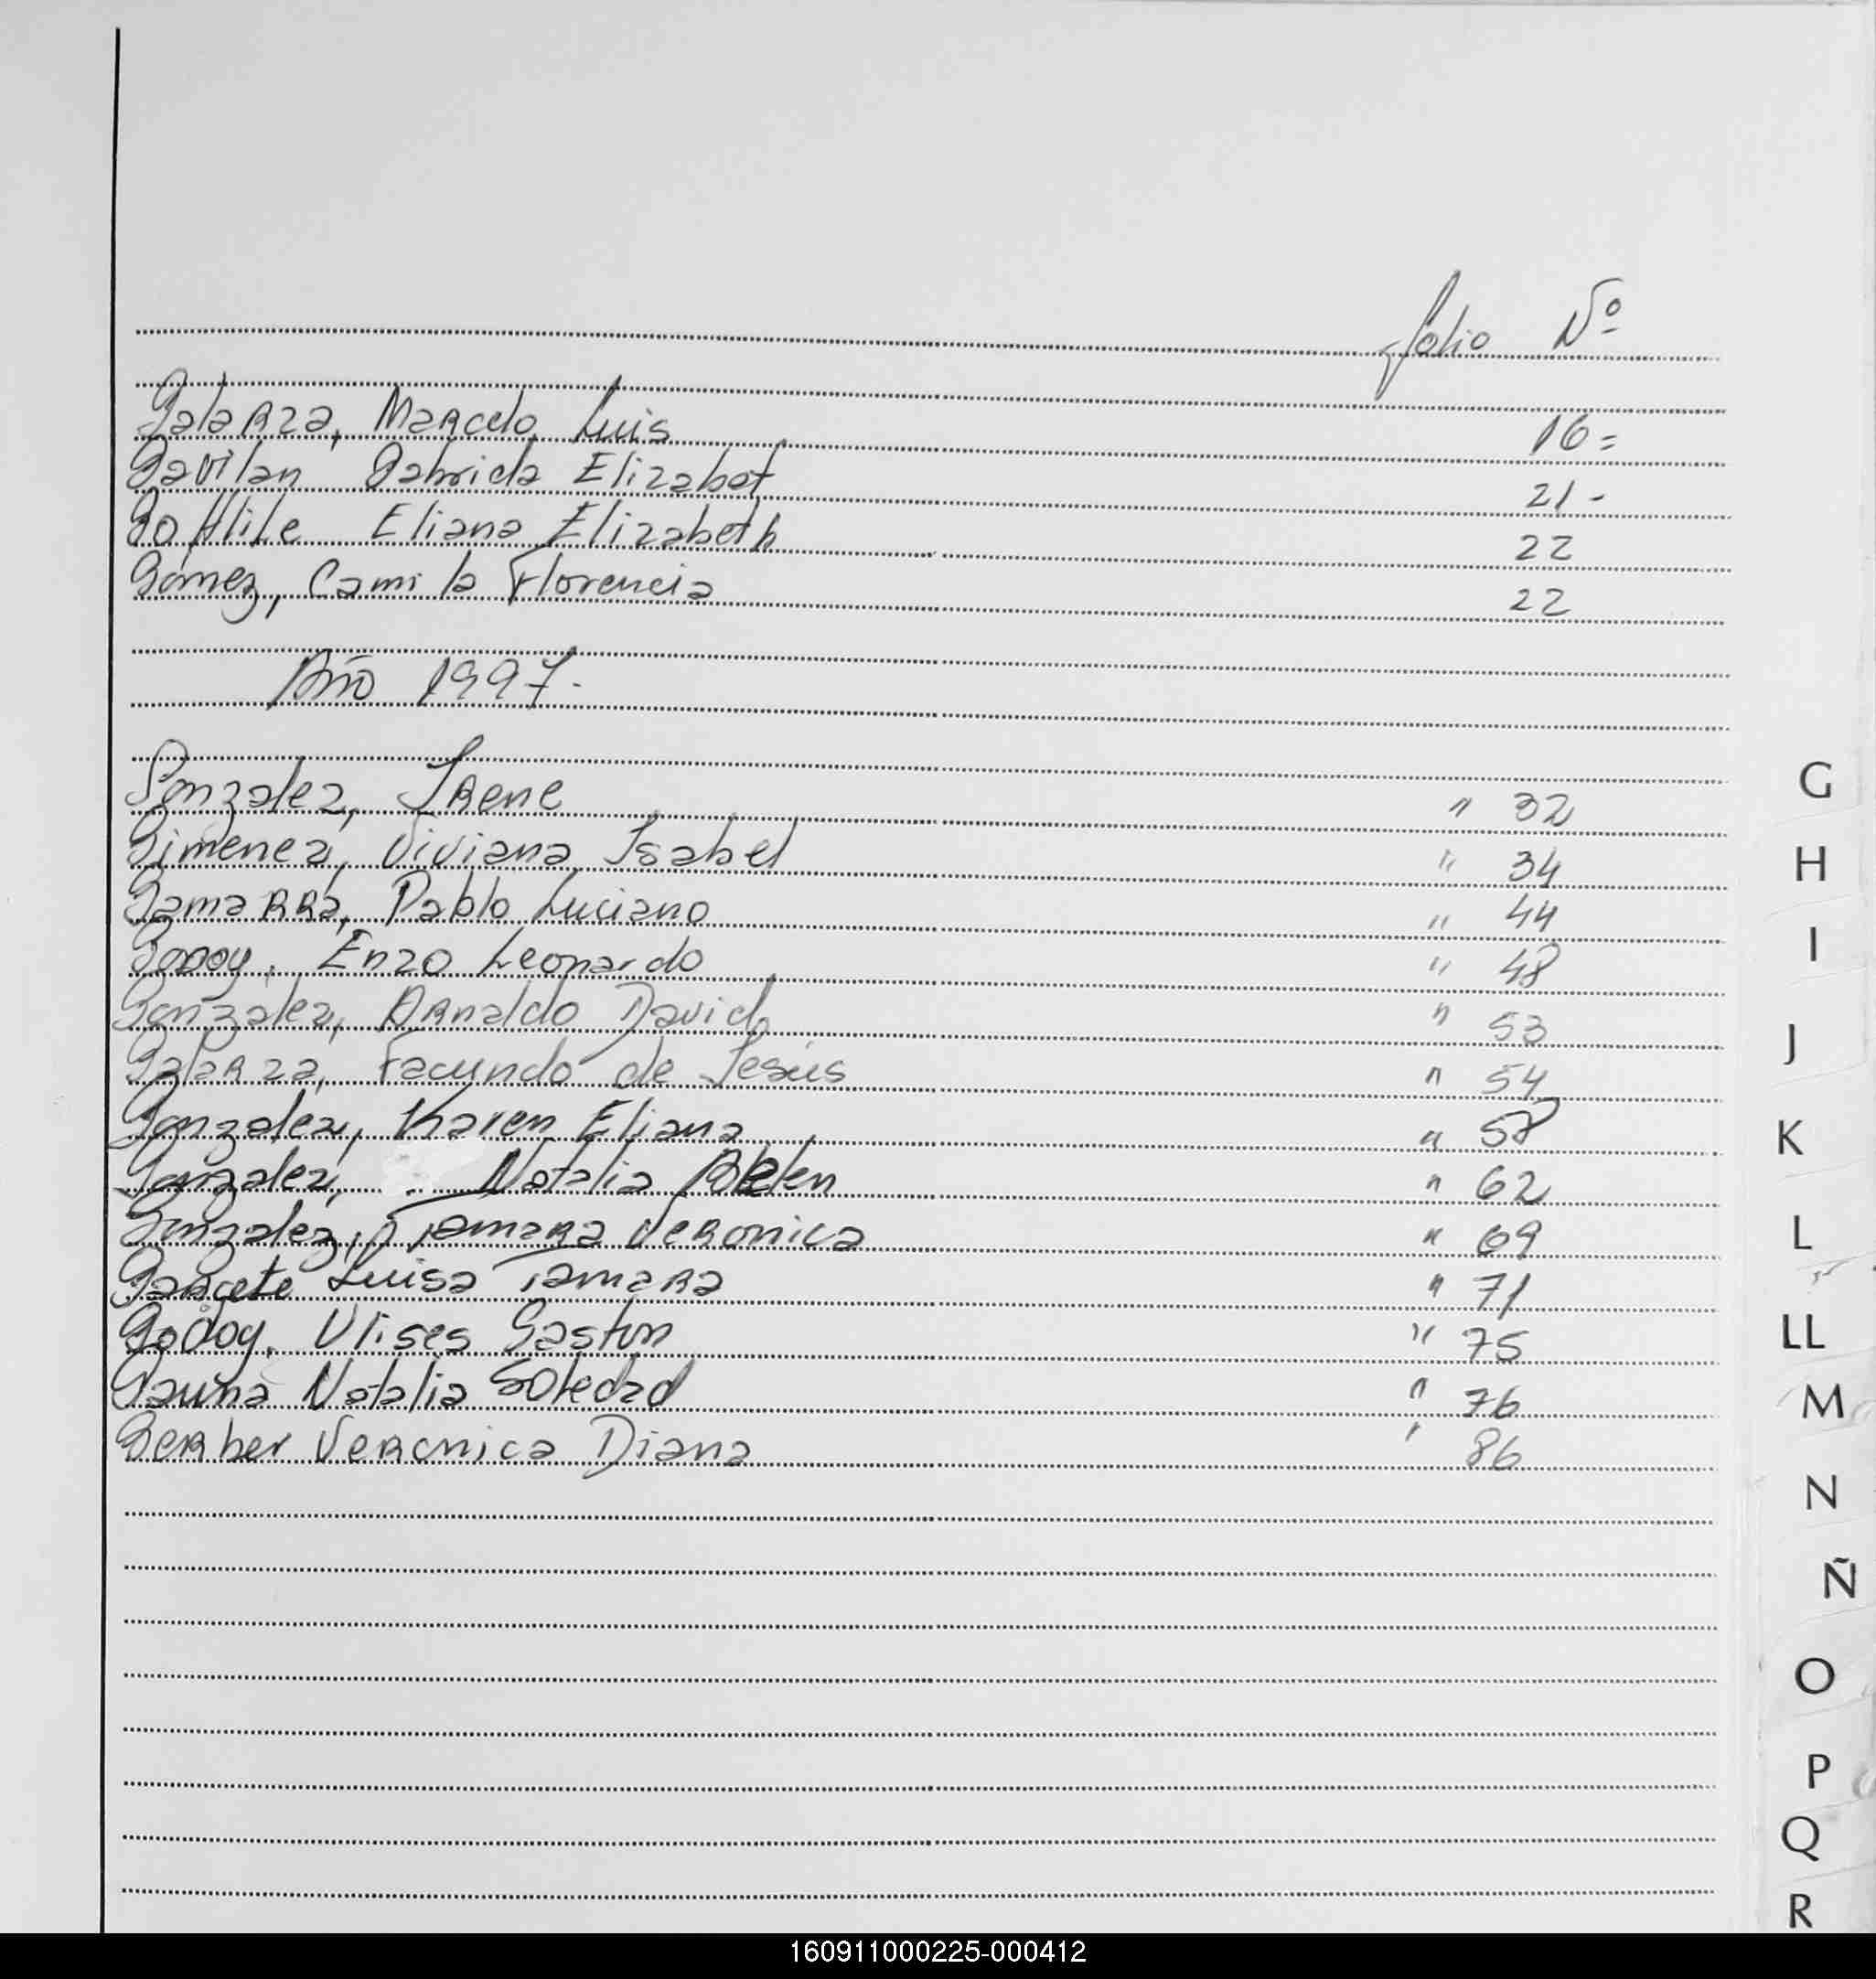 folio Nº
Galarza, Marcelo Luis 16=
Gavilan Gabriela Elizabet 21-
Eliana Elizabeth 22
Gómez, Camila Florencia 22
Año 1997.
Gonzalez, Irene " 32
Gimenez, Viviana Isabel " 34
Gamarra, Pablo Luciano " 44
Godoy, Enzo Leonardo " 48
Gonzalez, Arnaldo David " 53
Galarza, Facundo de Jesús " 54
Gonzalez, Karen Eliana " 58
Gonzalez, Natalia Belen " 62
Gonzalez, Tamara Veronica " 69
Garcete Luisa Tamara " 71
Godoy, Ulises Gaston " 75
Gauna Natalia Soledad " 76
Gerber Veronica Diana " 86
G
H
I
J
K
L
LL
M
N
Ñ
O
P
Q
R
160911000225-000412